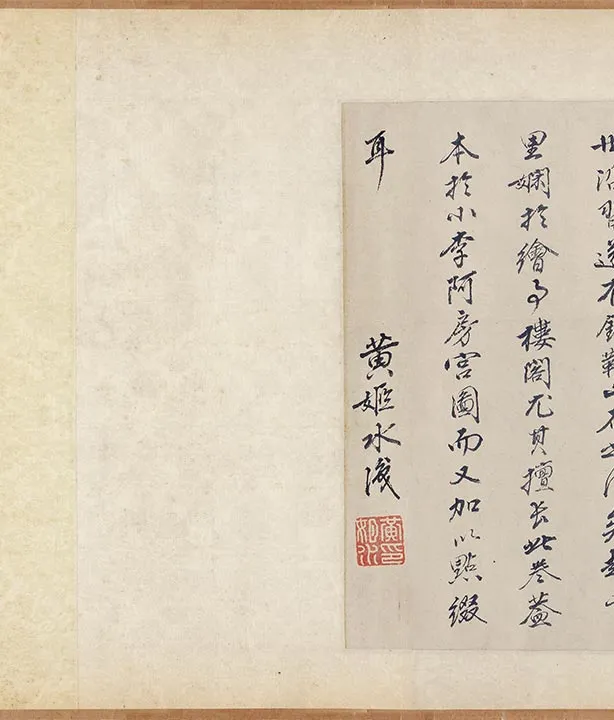 世沿習遂有
里嫻於繪事樓閣尤其擅長此卷蓋
本於小李阿房宮圖而又加以點綴
耳
黃姬水識
黃印姬水